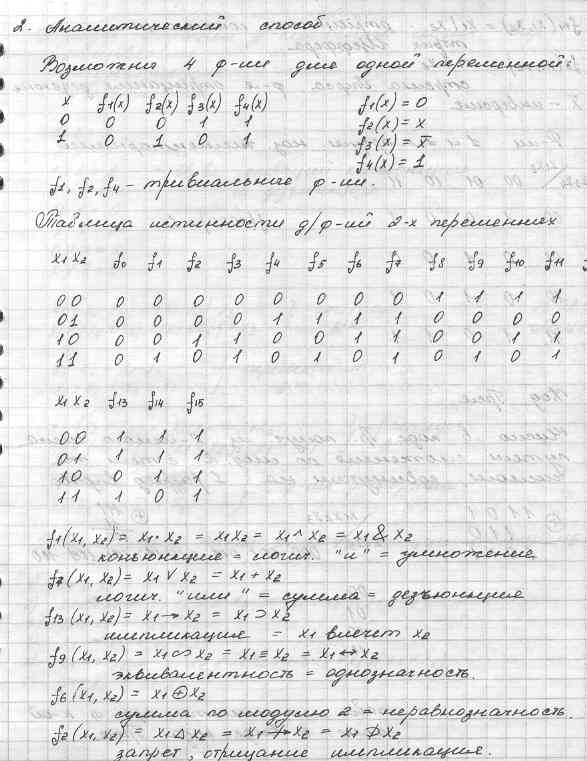 2. Аналитический способ
Возможны 4 ф-ии для одной переменной:
x f1(x) f2(x) f3(x) f4(x) f1(x) = 0
0 0 0 1 1 f2(x) = x
1 0 1 0 1 f3(x) = x̄
f4(x) = 1
f1, f2, f4 – тривиальные ф-ии.
Таблица истинности д/ф-ий 2-х переменных
x1 x2 f0 f1 f2 f3 f4 f5 f6 f7 f8 f9 f10 f11
00 0 0 0 0 0 0 0 0 1 1 1 1
01 0 0 0 0 1 1 1 1 0 0 0 0
10 0 0 1 1 0 0 1 1 0 0 1 1
11 0 1 0 1 0 1 0 1 0 1 0 1
x1 x2 f13 f14 f15
00 1 1 1
01 1 1 1
10 0 1 1
11 1 0 1
f1(x1, x2) = x1·x2 = x1x2 = x1 ^ x2 = x1 & x2
коньюнкция = логич. "и" = умножение
f7(x1, x2) = x1 V x2 = x1 + x2
логич. "или" = сумма = дезъюнкция
f13(x1, x2) = x1 → x2 = x1 ⊃ x2
импликация = x1 влечет x2
f9(x1, x2) = x1 ∽ x2 = x1 ≡ x2 = x1 ↔ x2
эквивалентность = однозначность.
f6(x1, x2) = x1 ⊕ x2
сумма по модулю 2 = неравнозначность.
f2(x1, x2) = x1 Δ x2 = x1 ↛ x2 = x1 ⊅ x2
запрет, отрицание импликации.